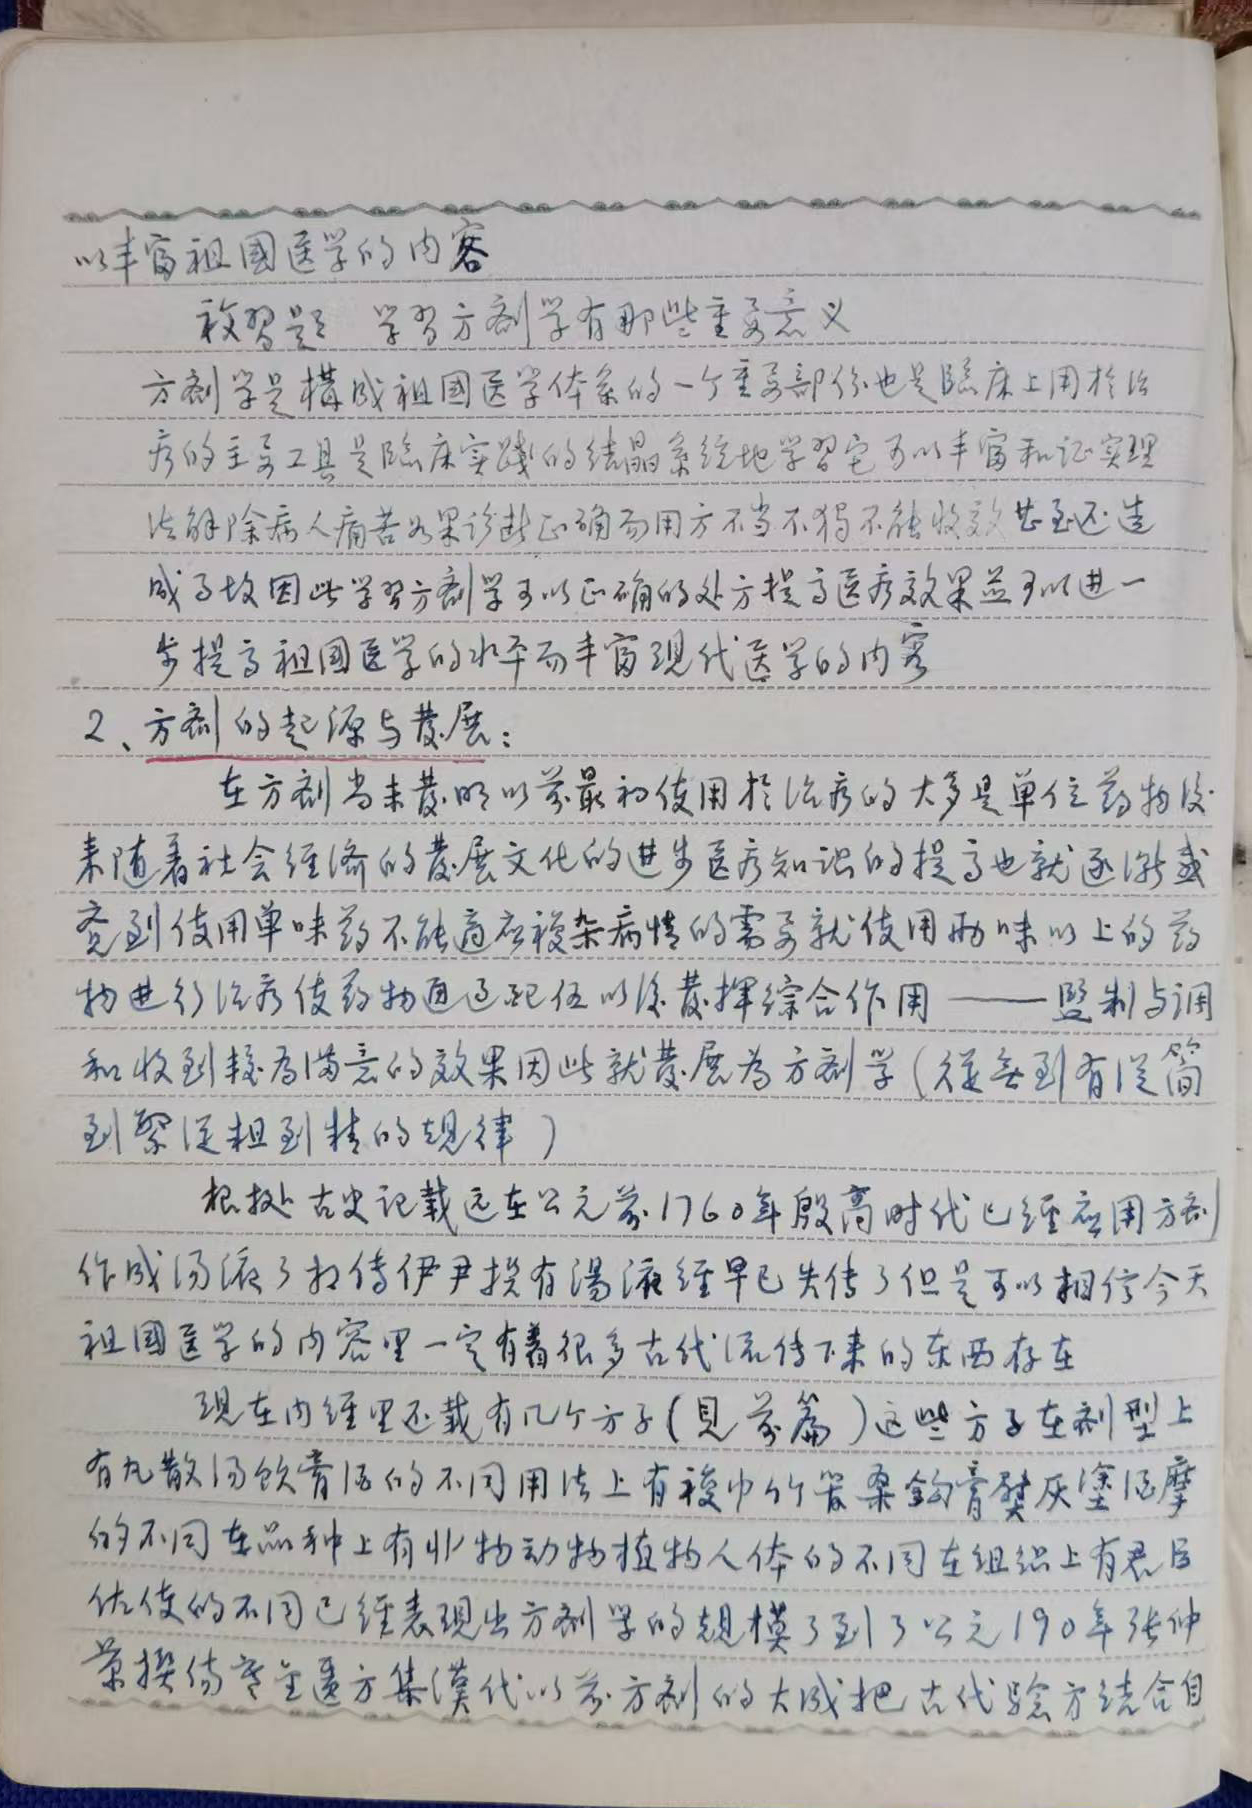 以丰富祖國医学的内容
複習题 学習方剂学有那些重要意义
方剂学是構成祖國医学体系的一个重要部份也是臨床上用於治
疗的主要工具是臨床实践的结晶系统地学習它可以丰富和证实理
法解除病人痛苦如果诊断正确而用方不当不獨不能收效甚至还造
成事故因此学習方剂学可以正确的处方提高医疗效果並可以进一
步提高祖國医学的水平而丰富现代医学的内容
2、方剂的起源与發展：
在方剂尚未發明以前最初使用於治疗的大多是单位药物後
来随着社会经济的發展文化的进步医疗知识的提高也就逐渐感
觉到使用单味药不能適应複杂病情的需要就使用兩味以上的药
物进行治疗使药物通过配伍以後發揮综合作用——監制与调
和收到较为满意的效果因此就發展為方剂学（從无到有從简
到繁從粗到精的规律）
根据古史记载远在公元前1760年殷商时代已经应用方剂
作成汤液了相传伊尹撰有湯液经早已失传了但是可以相信今天
祖國医学的内容里一定有着很多古代流传下来的东西存在
现在内经里还载有几个方子（見前篇）这些方子在剂型上
有丸散汤飲膏酒的不同用法上有複巾竹管桑鉤膏熨灰塗酒摩
的不同在品种上有矿物动物植物人体的不同在组织上有君臣
佐使的不同已经表现出方剂学的規模了到了公元190年张仲
景撰伤寒金匮方集漢代以前方剂的大成把古代验方结合自